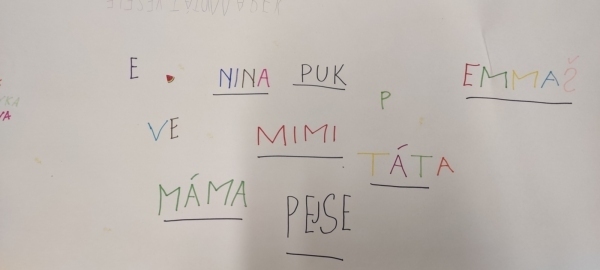 E
NINA PUK
EMMAŽ
P
VE
MIMI
TÁTA
MÁMA
PEJSE